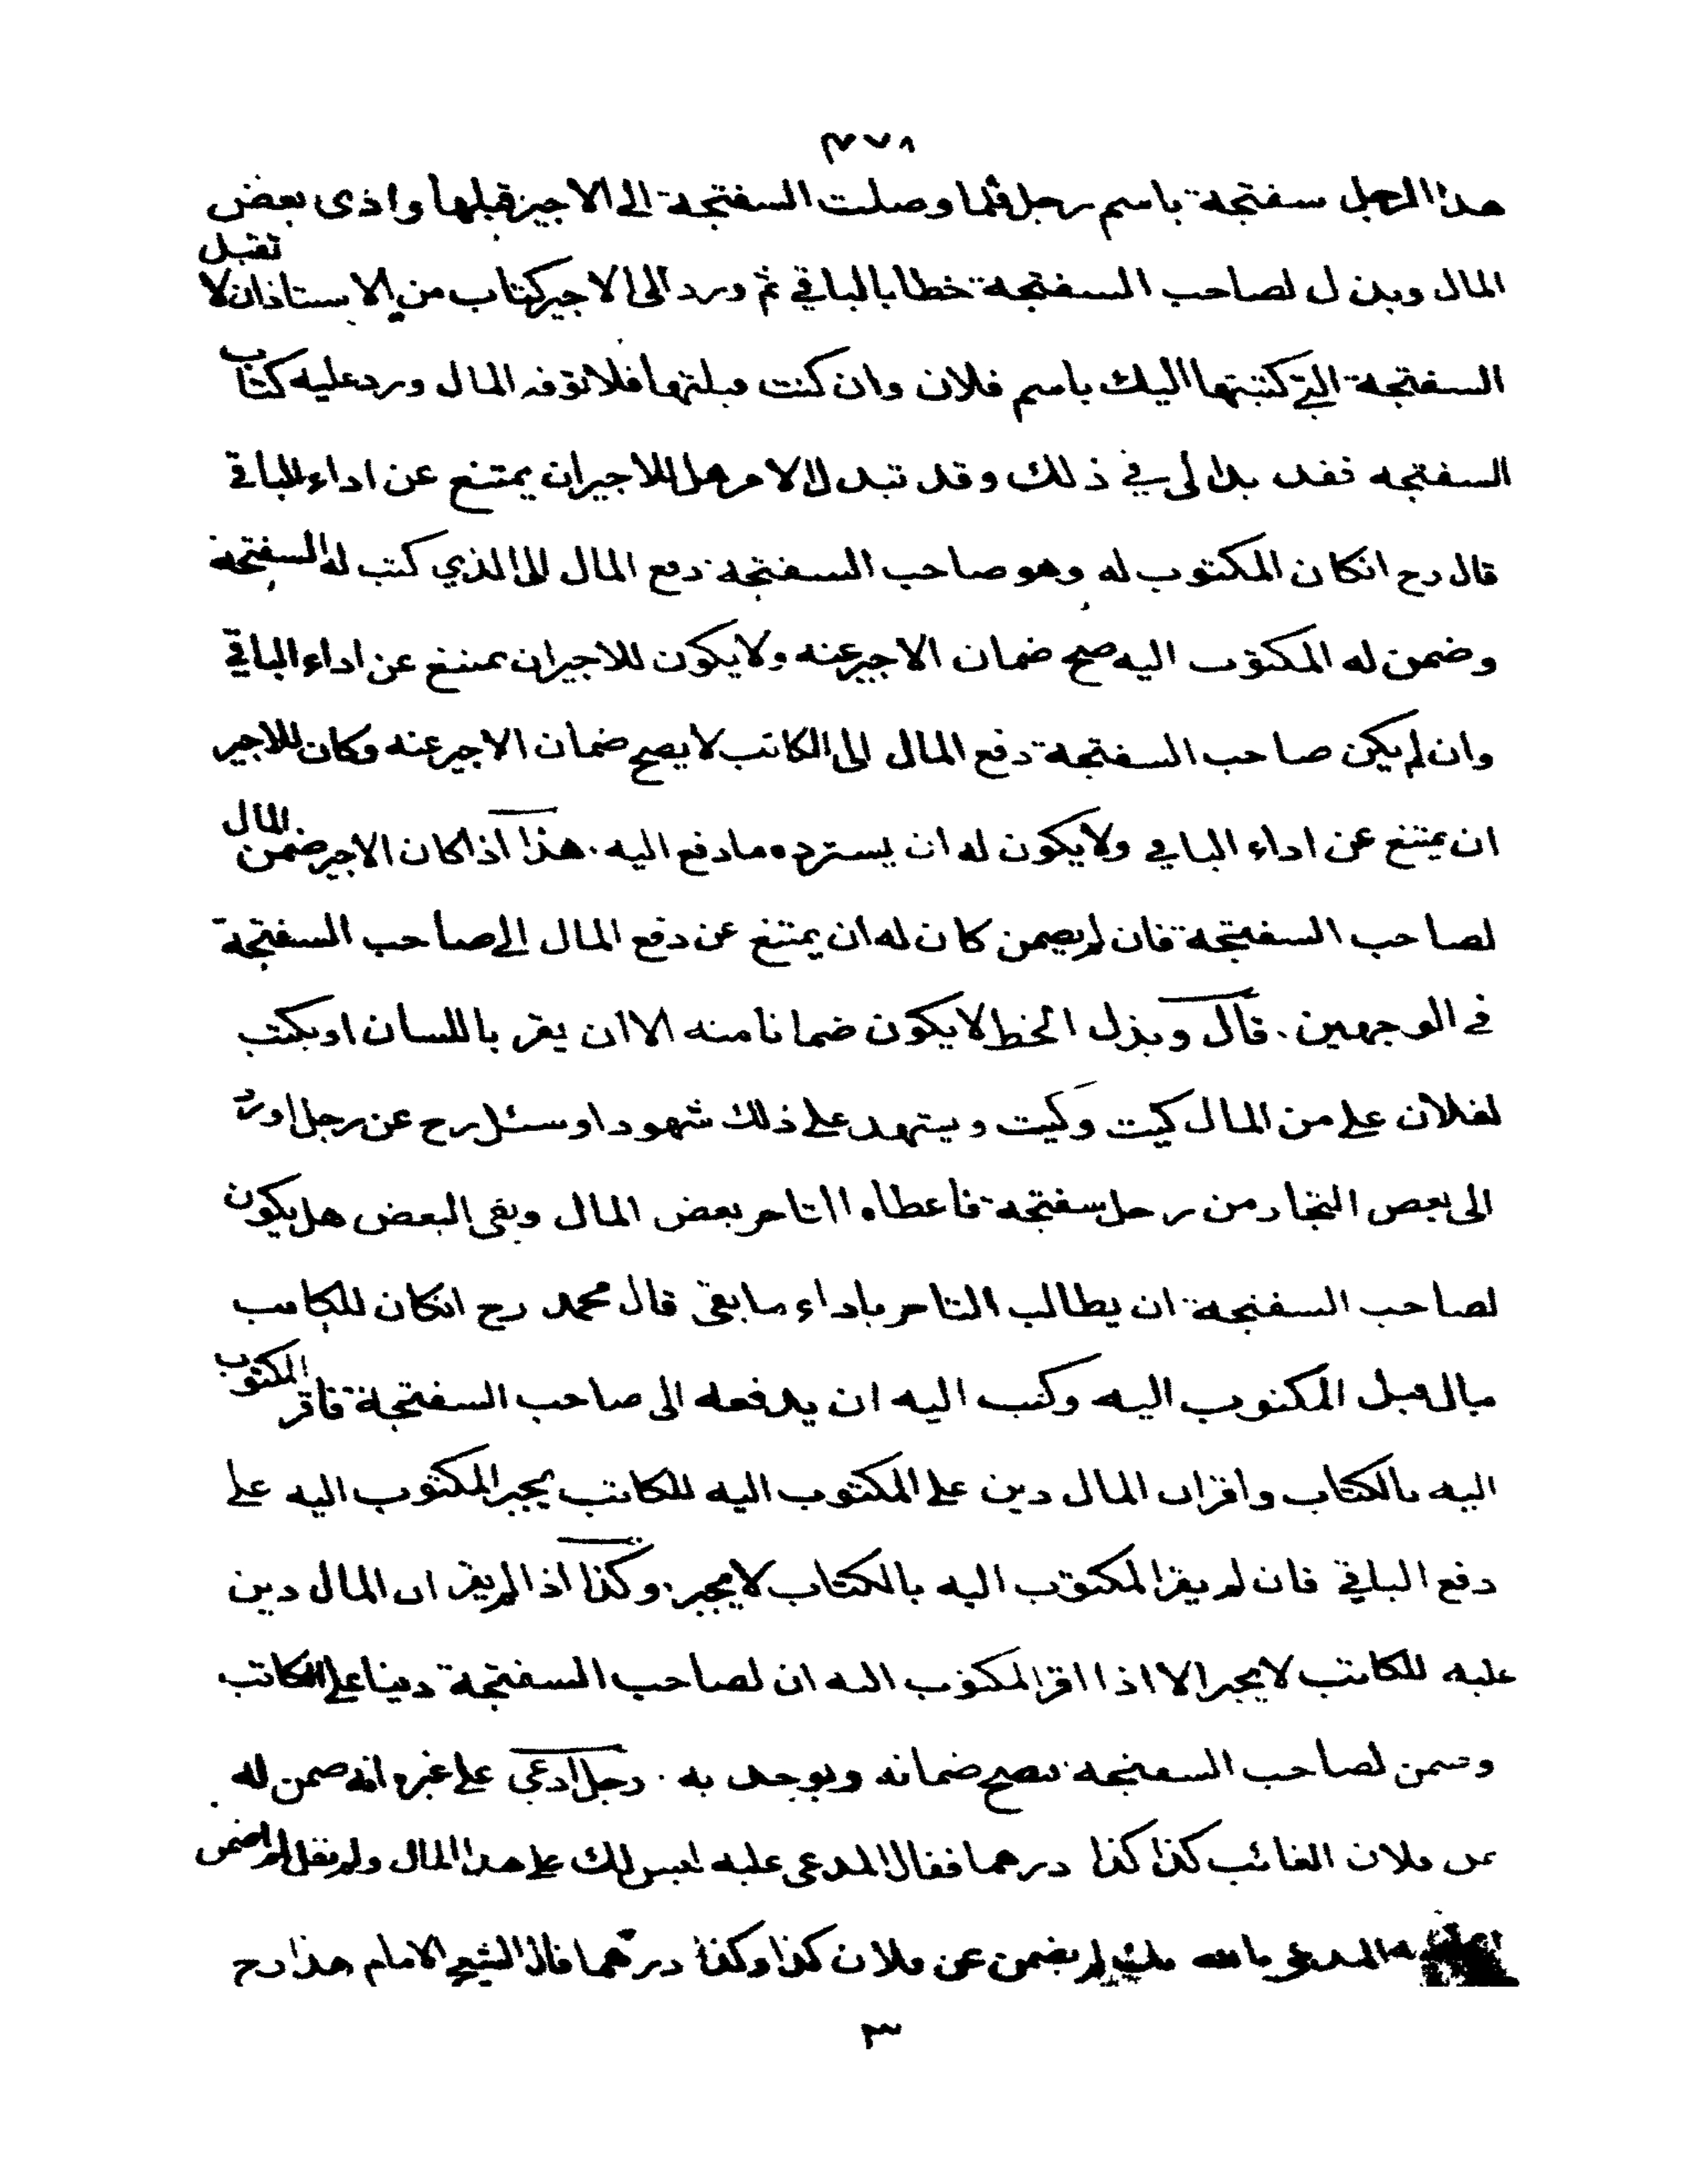 ٣٧٨
هذا الرجل سفتجة باسم رجل فلما وصلت السفتجة الى الاجير قبلها وادى بعض
المال وبذل لصاحب السفتجة خطا بالباقي ثم ورد الى الاجير كتاب من الاستاذ ان لا تقبل
السفتجة التي كتبتها اليك باسم فلان وان كنت قبلتها فلا توفه المال ورد عليه كتاب
السفتجه فقد بدا لي في ذلك وقد تبدل الامر هل للاجير ان يمتنع عن اداء الباقي
قال رح انكان المكتوب له وهو صاحب السفتجة دفع المال الى الذي كتب له السفتجة
وضمن له المكتوب اليه صح ضمان الاجير عنه ولا يكون للاجير ان يمتنع عن اداء الباقي
وان لم يكن صاحب السفتجة دفع المال الى الكاتب لا يصح ضمان الاجير عنه وكان للاجير
ان يمتنع عن اداء الباقي ولا يكون له ان يسترده ما دفع اليه . هذا اذا كان الاجير ضمن المال
لصاحب السفتجة فان لم يضمن كان له ان يمتنع عن دفع المال الى صاحب السفتجة
في الوجهين . قال وبذل الخط لا يكون ضمانا منه الا ان يقر باللسان او يكتب
لفلان علي من المال كيت وكيت ويشهد على ذلك شهودا وسئل رح عن رجل اورد
الى بعض التجار من رجل سفتجة فاعطاه التاجر بعض المال وبقى البعض هل يكون
لصاحب السفتجة ان يطالب التاجر باداء ما بقى قال محمد رح انكان للكاتب
مال قبل المكتوب اليه وكتب اليه ان يدفعه الى صاحب السفتجة فاقر المكتوب
اليه بالكتاب واقر ان المال دين على المكتوب اليه للكاتب يجبر المكتوب اليه على
دفع الباقي فان لم يقر المكتوب اليه بالكتاب لا يجبر . وكذا اذا لم يقر ان المال دين
عليه للكاتب لا يجبر الا اذا اقر المكتوب اليه ان لصاحب السفتجة دينا على الكاتب
وضمن لصاحب السفتجه فصح ضمانه ويوخذ به . رجل ادعى على غيره انه ضمن له
عن فلان الغائب كذا كذا درهما فقال المدعى عليه ليس لك علي هذا المال ولم يقل لم اضمن
المدعي بالله لم يضمن عن فلان كذا وكذا درهما قال الشيخ الامام هذا رح
٣